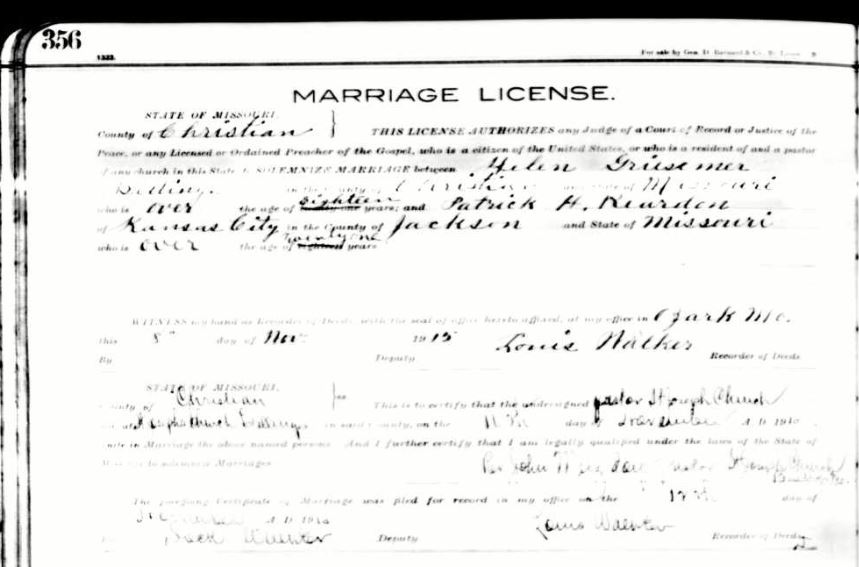 356
1322.
For sale by Geo. D. Barnard & Co. St. Louis
MARRIAGE LICENSE.
STATE OF MISSOURI,
County of Christian } THIS LICENSE AUTHORIZES any Judge of a Court of Record or Justice of the
Peace, or any Licensed or Ordained Preacher of the Gospel, who is a citizen of the United States, or who is a resident of and a pastor
of any church in this State to SOLEMNIZE MARRIAGE between Helen Griesemer
Billings in the County of Christian and State of Missouri
who is over the age of eighteen years; and Patrick H. Reardon
of Kansas City in the County of Jackson and State of Missouri
who is over the age of twenty one years
WITNESS my hand as Recorder of Deeds, with the seal of office hereto affixed, at my office in Ozark Mo.
this 8" day of Nov. 1915 Louis Walker
By Deputy Recorder of Deeds
STATE OF MISSOURI,
County of Christian }ss This is to certify that the undersigned pastor St Joseph Church
in said County, on the day of November A. D. 191
unite in Marriage the above named persons. And I further certify that I am legally qualified under the laws of the State of
Missouri to solemnize Marriages
Rev John pastor St Joseph Church
The foregoing Certificate of Marriage was filed for record in my office on the day of
November A. D. 191
Louis Walker
Deputy Recorder of Deeds